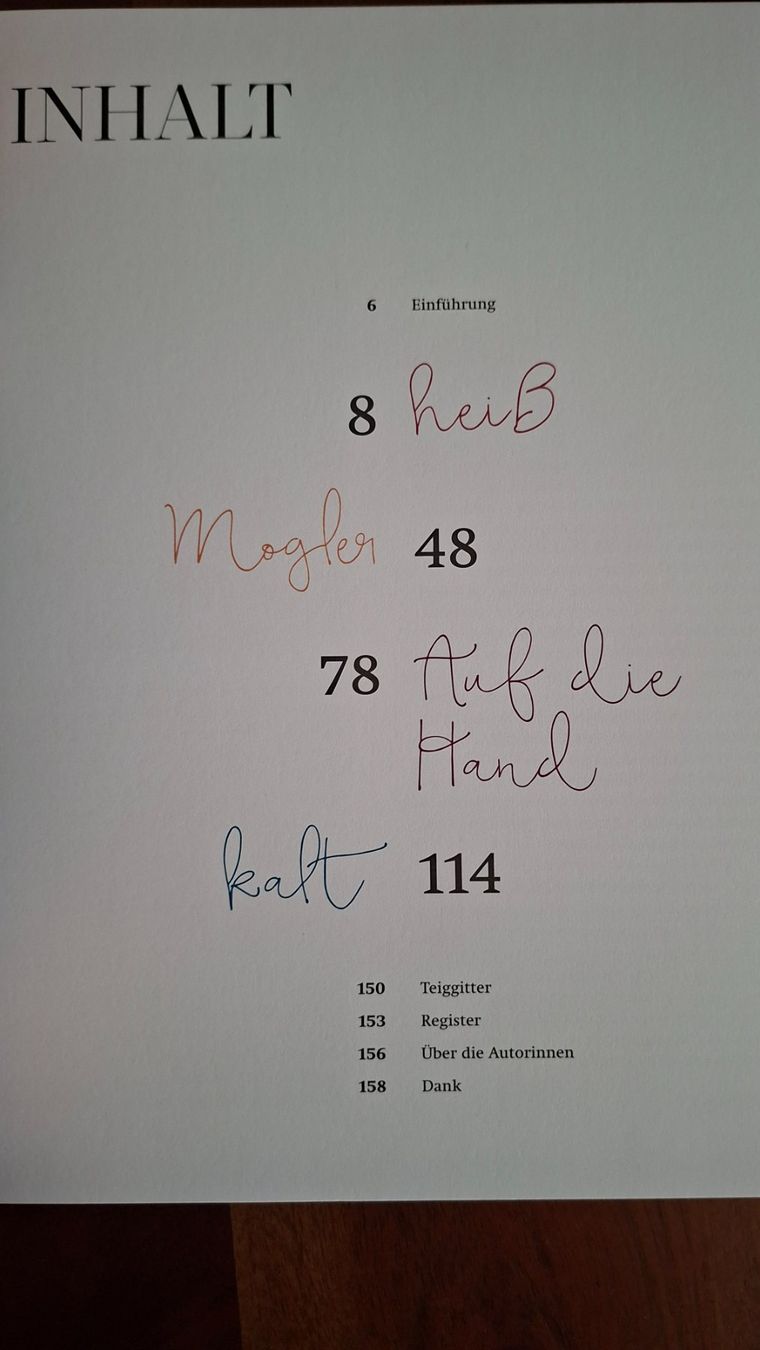 INHALT
6 Einführung
8 heiß
Mogler 48
78 Auf die
Hand
kalt 114
150 Teiggitter
153 Register
156 Über die Autorinnen
158 Dank